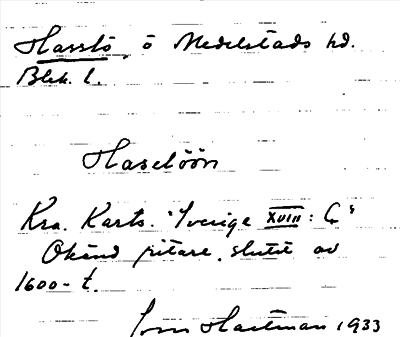 Hasslö, ö Medelstads hd.
Blek. l.
Haselöön
Kra. Kartv. "Sverige XVIII: 6"
Okänd ritare, slutet av
1600-t.
Hartman 1933